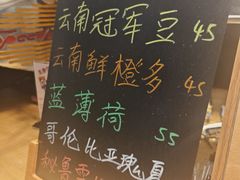 云南冠军豆 45
云南鲜橙多 45
蓝薄荷 55
哥伦比亚瑰夏
秘鲁